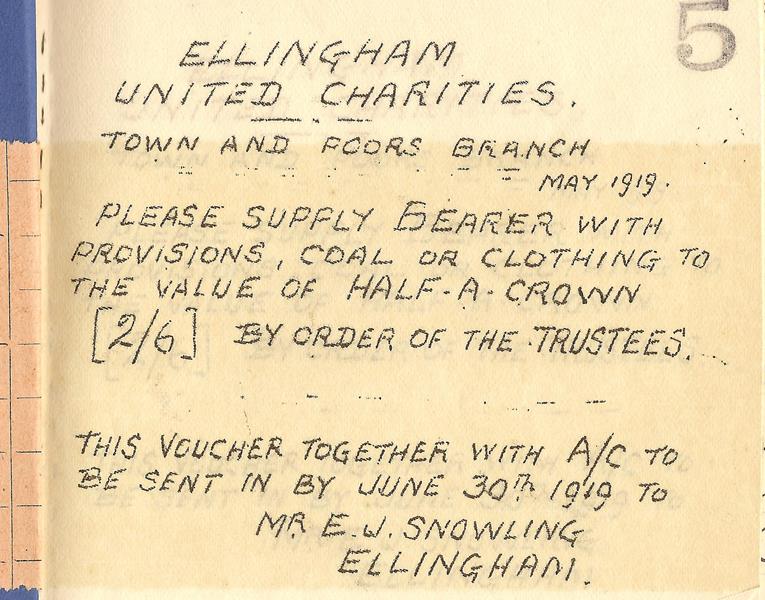 5
ELLINGHAM
UNITED CHARITIES.
TOWN AND POORS BRANCH
MAY 1919.
PLEASE SUPPLY BEARER WITH
PROVISIONS, COAL OR CLOTHING TO
THE VALUE OF HALF-A-CROWN
[2/6] BY ORDER OF THE TRUSTEES.
THIS VOUCHER TOGETHER WITH A/C TO
BE SENT IN BY JUNE 30TH 1919 TO
MR E.J. SNOWLING
ELLINGHAM.